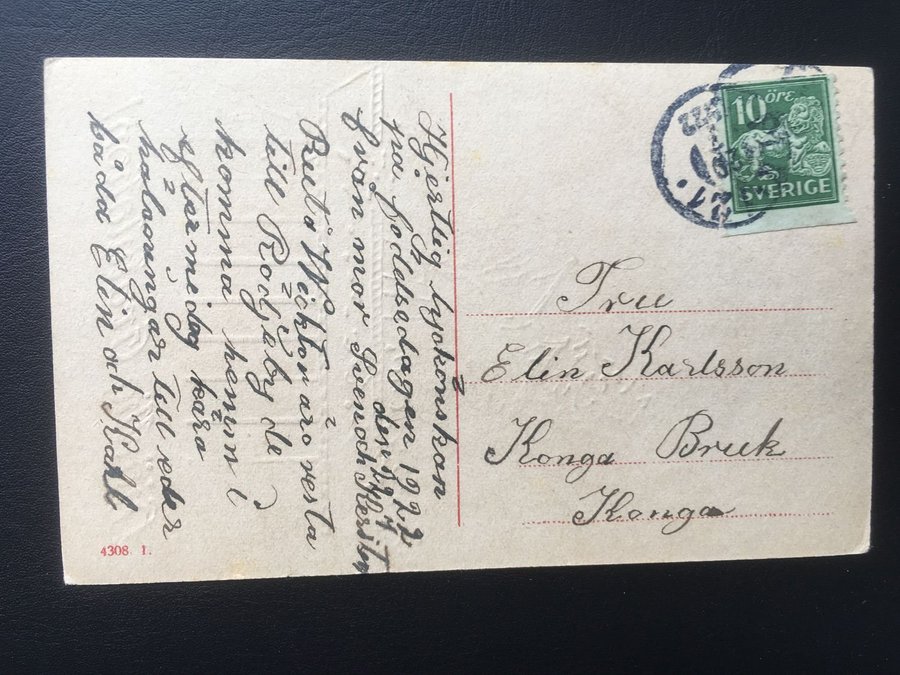 Hjertlig lyckönskan
på födelsedagen 1922
den 22/7
från mor Sven och Kerstin
Rut o W Vicktor äro resta
till Rödjeby de
komma hemm i
eftermidag kära
hälsningar till eder
båda Elin och Karl
10 ÖRE
SVERIGE
22
Fru
Elin Karlsson
Konga Bruk
Konga
4308 1.